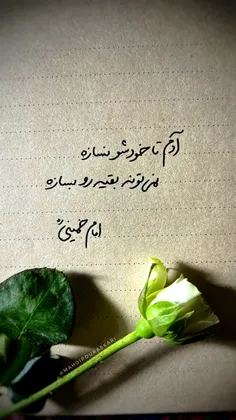 آدم تا خودشو نسازه
نمی‌تونه بقیه رو بسازه
امام خمینی(ره)
@MAHDIPOURASGARI